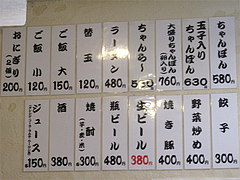 ちゃんぽん
580円
玉子入り
ちゃんぽん
630円
大盛りちゃんぽん
(卵入り)
760円
ちゃんらー
ラーメン
480円
替玉
120円
ご飯 大
150円
ご飯 小
120円
おにぎり
(2個)
200円
餃子
300円
野菜炒め
400円
焼き豚
400円
生ビール
380円
瓶ビール
480円
焼酎
(芋・麦・米)
各300円
酒
380円
ジュース
各150円